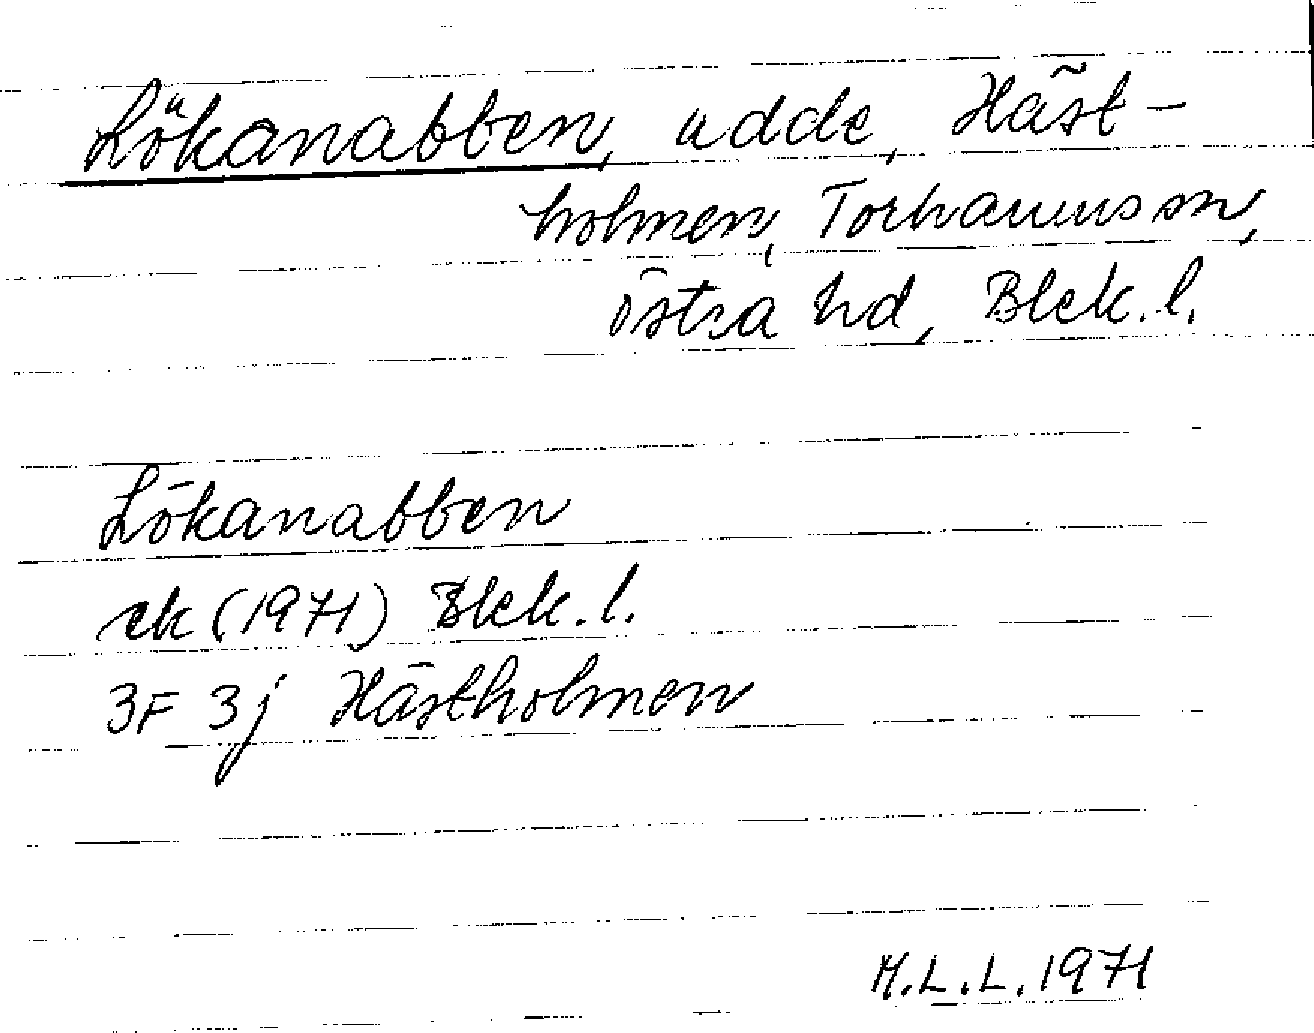 Lökanabben, udde, Häst-
holmen, Torhamns sn,
Östra hd, Blek. l.
Lökanabben
ek (1971) Blek. l.
3F 3j Hästholmen
M.L.L. 1971